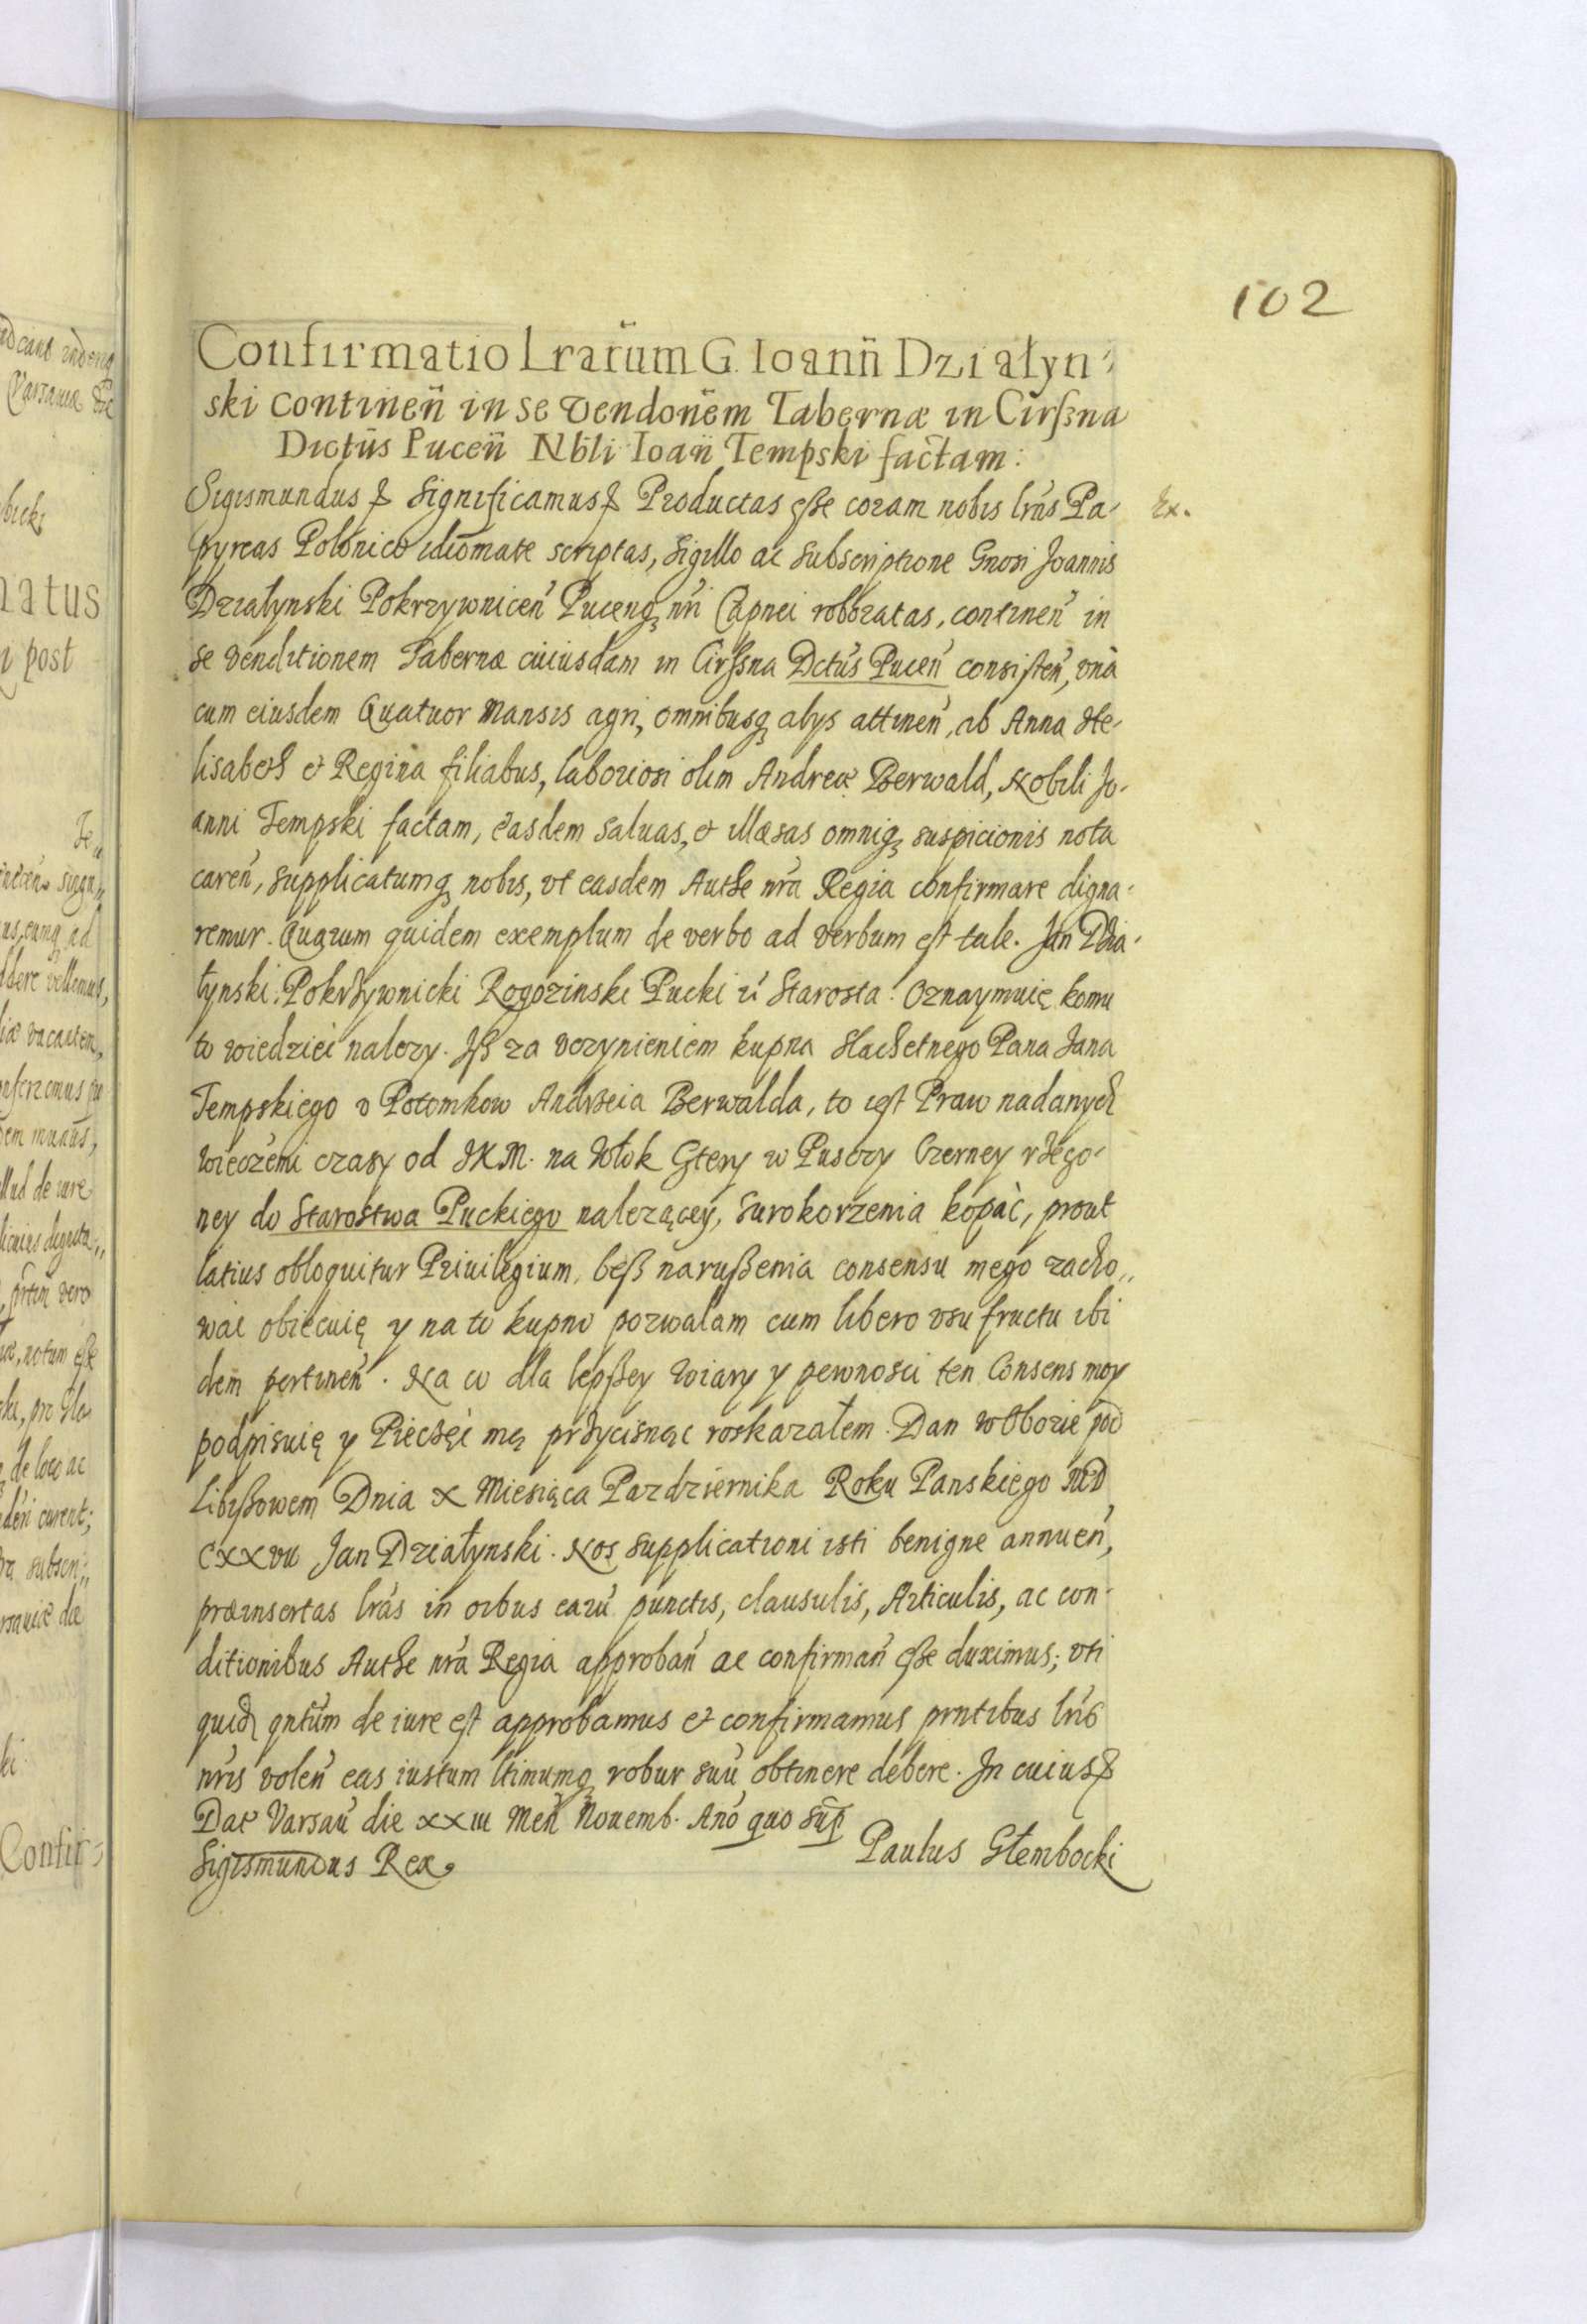 102
Confirmatio Lrarũm G. Ioann̈ Dzi ałyn-
ski continen̈ in se vendonẽm Tabernæ in Cirßna
Dictūs Pucen̈ Nb̈li Ioan̈ Tempski factam:
Sigismundus & Significamus & Productas eße coram nobis lrãs Pa-
Ex.
pyreas Polonico idiomate scriptas, Sigillo ac Subscriptione Gnosi Joannis
Działynski Pokrzywniceń Puceñq nri Capnei roboratas, continen̄ in
se venditionem Tabernæ cuiusdam in Cirßna Dctūs Pucen̄ consisten̄, vnà
cum eiusdem Quatuor Mansis agri, omnibusq alys attinen̄, ab Anna He-
lisabeth et Regina filiabus, laboriosi olim Andreæ Berwald, Nobili Jo-
anni Tempski factam, easdem saluas, et illæsas omniq suspicionis nota
caren̄, supplicatumq nobis, vt easdem Authe nrã Regia confirmare digna-
remur. Quarum quidem exemplum de verbo ad verbum est tale. Jan Dzia-
łynski, Pokrzywnicki Rogozinski Pucki Starosta. Oznaymuię komu
to wiedzieć nalezy. Iß za vczynieniem kupna Slachetnego Pana Jana
Tempskiego v Potomkow Andrzeia Berwalda, to iest Praw nadanych
wieczemi czasy od JKM. na Włok Gtery w Pusczy Czerney
ney do Starostwa Puckiego nalezącey, Surokorzenia kopać, prout
latius obloquitur Priuilegium, beß narußenia consensu mego zacho,,
wać obiecuię y na to kupno pozwalam cum libero vsufructu ibi
dem pertinen̄. Na co dla lepßey wiary y pewnosci ten Consens moy
podpisuię y Pieczęć mą przycisnąc roskazałem. Dan w Obozie pod
Libißowem Dnia X Miesiąca Pazdziernika Roku Panskiego MD
CXXVII Jan Działynski. Nos supplicationi isti benigne annuen̄,
præinsertas lrãs in oibus earū punctis, clausulis, Articulis, ac con-
ditionibus Authe nrã Regia approban̄ ac confirman̄ eße duximus; vti
quidẽ qntūm de iure est approbamus et confirmamus pntibus lrĩs
nrĩs volen̄ eas iustum ltimumq robur suū obtinere debere. In cuius &
Dat Varsau̇ die XXIII Men̄ Nouemb. Anõ quo sup̄
Sigismundus Rex.
Paulus Głembocki